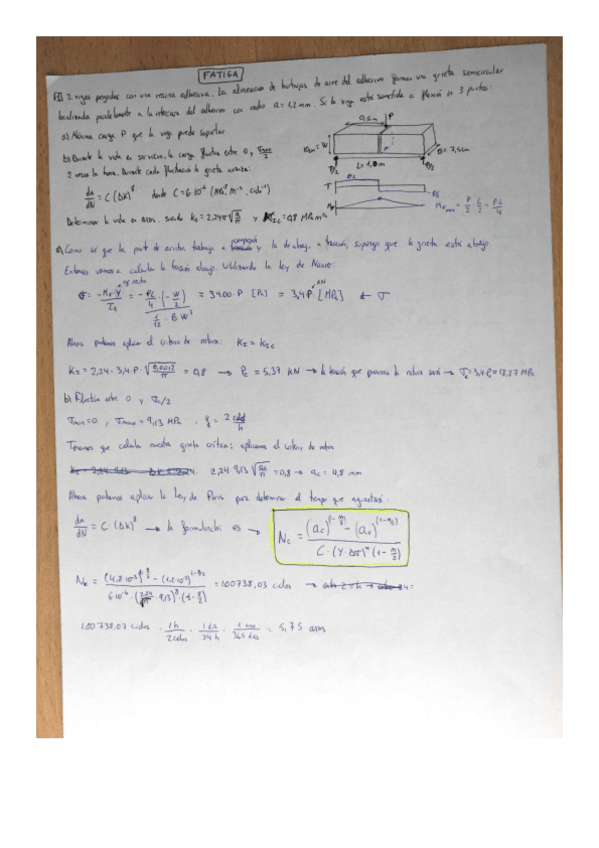 FATIGA
2 vigas pegadas con una resina adhesiva. La alineación de burbujas de aire del adhesivo forman una grieta semicircular
localizada paralelamente a la intercara del adhesivo con radio a = 1,2 mm. Si la viga está sometida a flexión en 3 puntos:
a) Máxima carga P que la viga puede soportar
b) Durante la vida en servicio, la carga fluctúa entre 0 y σmax/2
2 veces la hora. Durante cada fluctuación la grieta avanza:
da/dN = C (ΔK)^8 donde C = 6·10^-6 (MPa^-8 m^-3, ciclo^-1)
Determinar la vida en años. siendo K_I = 2,24σ√(a/π) y K_IC = 0,8 MPa·m^1/2
0,5 m
P
10 cm = W
B = 7,5 cm
L = 1,0 m
P/2
P/2
T
P/2
P/2
M_F
M_Fmax = P/2 · L/2 = PL/4
a) Como sé que la parte de arriba trabaja a compresión y la de abajo a tracción, supongo que la grieta está abajo
Entonces vamos a calcular la tensión abajo. Utilizando la ley de Navier:
σ = -M_F·y/I_z = -PL/4 · (-W/2) / (1/12 · B·W³) = 3400·P [Pa] = 3,4·P [MPa] ← σ
kN
Ahora podemos aplicar el criterio de rotura: K_I = K_IC
K_I = 2,24·3,4·P·√(0,0012/π) = 0,8 → P_c = 5,37 kN → la tensión que provoca la rotura será → σ_c = 3,4·P_c = 18,27 MPa
b) Fluctúa entre 0 y σc/2
σmin = 0 , σmax = 9,13 MPa , f = 2 ciclos/h
Tenemos que calcular nuestra grieta crítica: aplicamos el criterio de rotura
2,24·9,13 √(ac/π) = 0,8 → ac = 4,8 mm
Ahora podemos aplicar la Ley de Paris para determinar el tiempo que aguantará.
da/dN = C (ΔK)^8 → la formulinchi es → N_c = ((a_c)^(1-m/2) - (a_o)^(1-m/2)) / (C·(Y·Δσ)^m (1-m/2))
N_c = ((4.8·10^-3)^(1-8/2) - (1.2·10^-3)^(1-8/2)) / (6·10^-6·(2,24/√π·9,13)^8·(1-8/2)) = 100738,03 ciclos
100738,03 ciclos · 1h/2 ciclos · 1 día/24 h · 1 año/365 días = 5,75 años